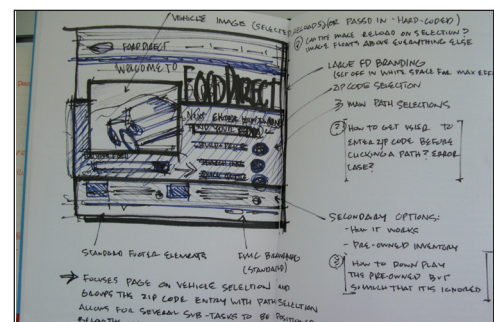 VEHICLE IMAGE (SELECTED RELOADS) (OR PASSED IN - HARD-CODED)
① CAN THE IMAGE RELOAD ON SELECTION?
IMAGE FLOATS ABOVE EVERYTHING ELSE
FORDDIRECT
WELCOME TO
FORDDIRECT
LARGE FD BRANDING
(SET OFF IN WHITE SPACE FOR MAX EFF
ZIP CODE SELECTION
3 MAIN PATH SELECTIONS
② HOW TO GET USER TO
ENTER ZIP CODE BEFORE
CLICKING A PATH? ERROR
CASE?
SECONDARY OPTIONS:
- HOW IT WORKS
- PRE-OWNED INVENTORY
③ HOW TO DOWN PLAY
THE PRE-OWNED BUT
SO MUCH THAT IT IS IGNORED
STANDARD FOOTER ELEMENTS
FMC BRANDING
(STANDARD)
→ FOCUSES PAGE ON VEHICLE SELECTION AND
GROUPS THE ZIP CODE ENTRY WITH PATH SELECTION
ALLOWS FOR SEVERAL SUB-TASKS TO BE POSITIONED